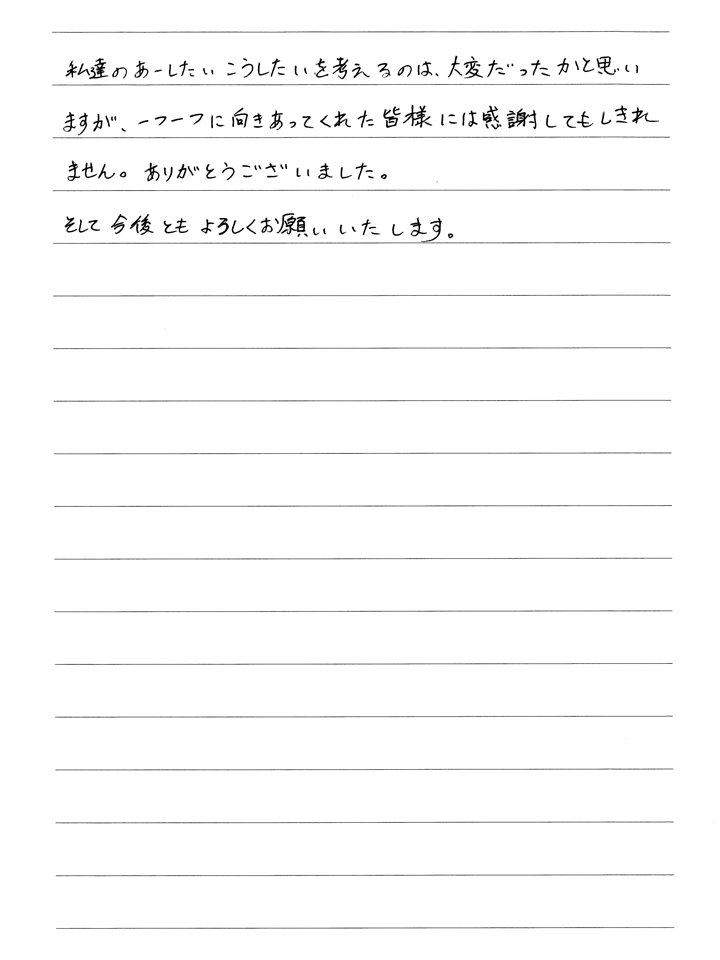 私達のあーしたいこうしたいを考えるのは、大変だったかと思い
ますが、一つ一つに向きあってくれた皆様には感謝してもしきれ
ません。ありがとうございました。
そして今後ともよろしくお願いいたします。